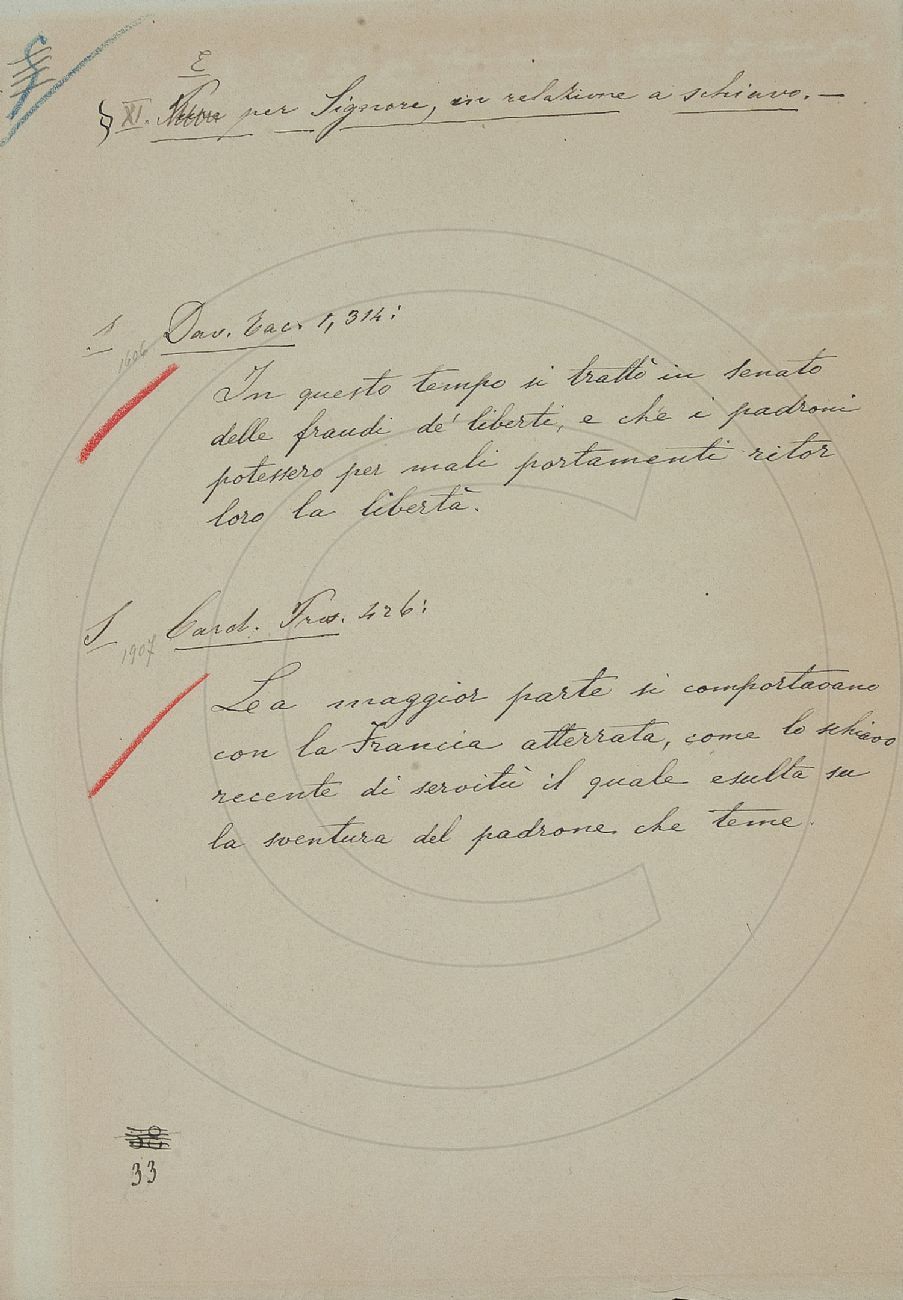 E
§ XI. per Signore, in relazione a schiavo. —
S Dav. Tac. 1, 314:
1606
In questo tempo si trattò in senato
delle fraudi de' liberti, e che i padroni
potessero per mali portamenti ritor
loro la libertà.
S Card. Pros. 426:
1907
La maggior parte si comportavano
con la Francia atterrata, come lo schiavo
recente di servitù il quale esulta su
la sventura del padrone che teme.
33